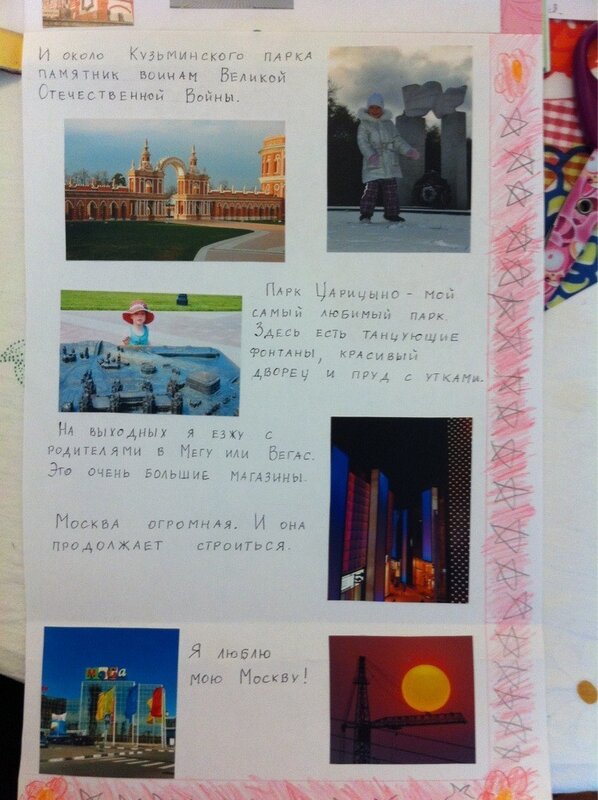 И около Кузьминского парка
памятник воинам Великой
Отечественной Войны.
Парк Царицыно - мой
самый любимый парк.
Здесь есть танцующие
фонтаны, красивый
дворец и пруд с утками.
На выходных я езжу с
родителями в Мегу или Вегас.
Это очень большие магазины.
Москва огромная. И она
продолжает строиться.
Я люблю
мою Москву!